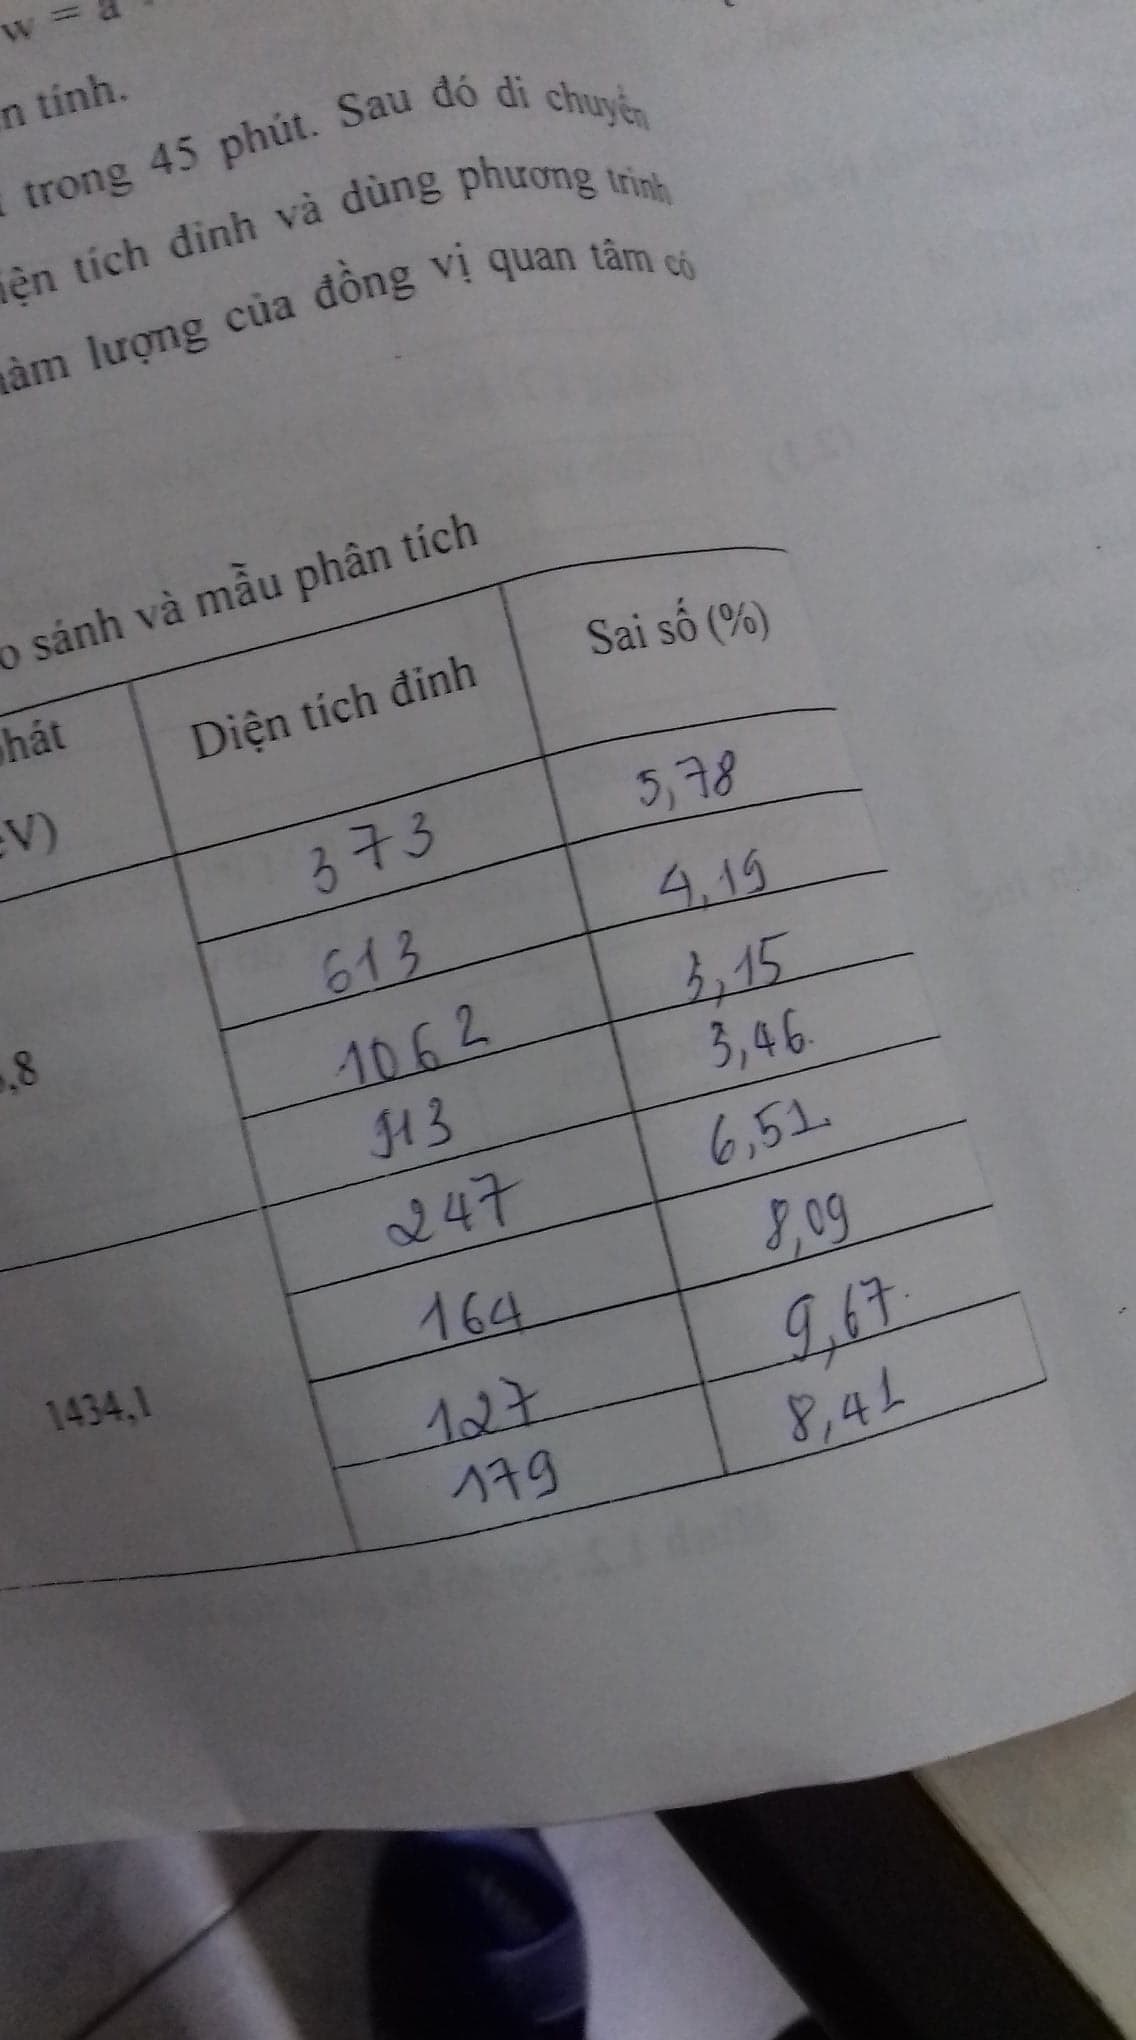 w = a
n tính.
trong 45 phút. Sau đó di chuyển
iện tích đỉnh và dùng phương trình
hàm lượng của đồng vị quan tâm có
o sánh và mẫu phân tích
hát Diện tích đỉnh Sai số (%)
eV)
373 5,78
613 4,19
1062 3,15
,8 913 3,46
247 6,51
164 8,09
1434,1 127 9,67
179 8,41